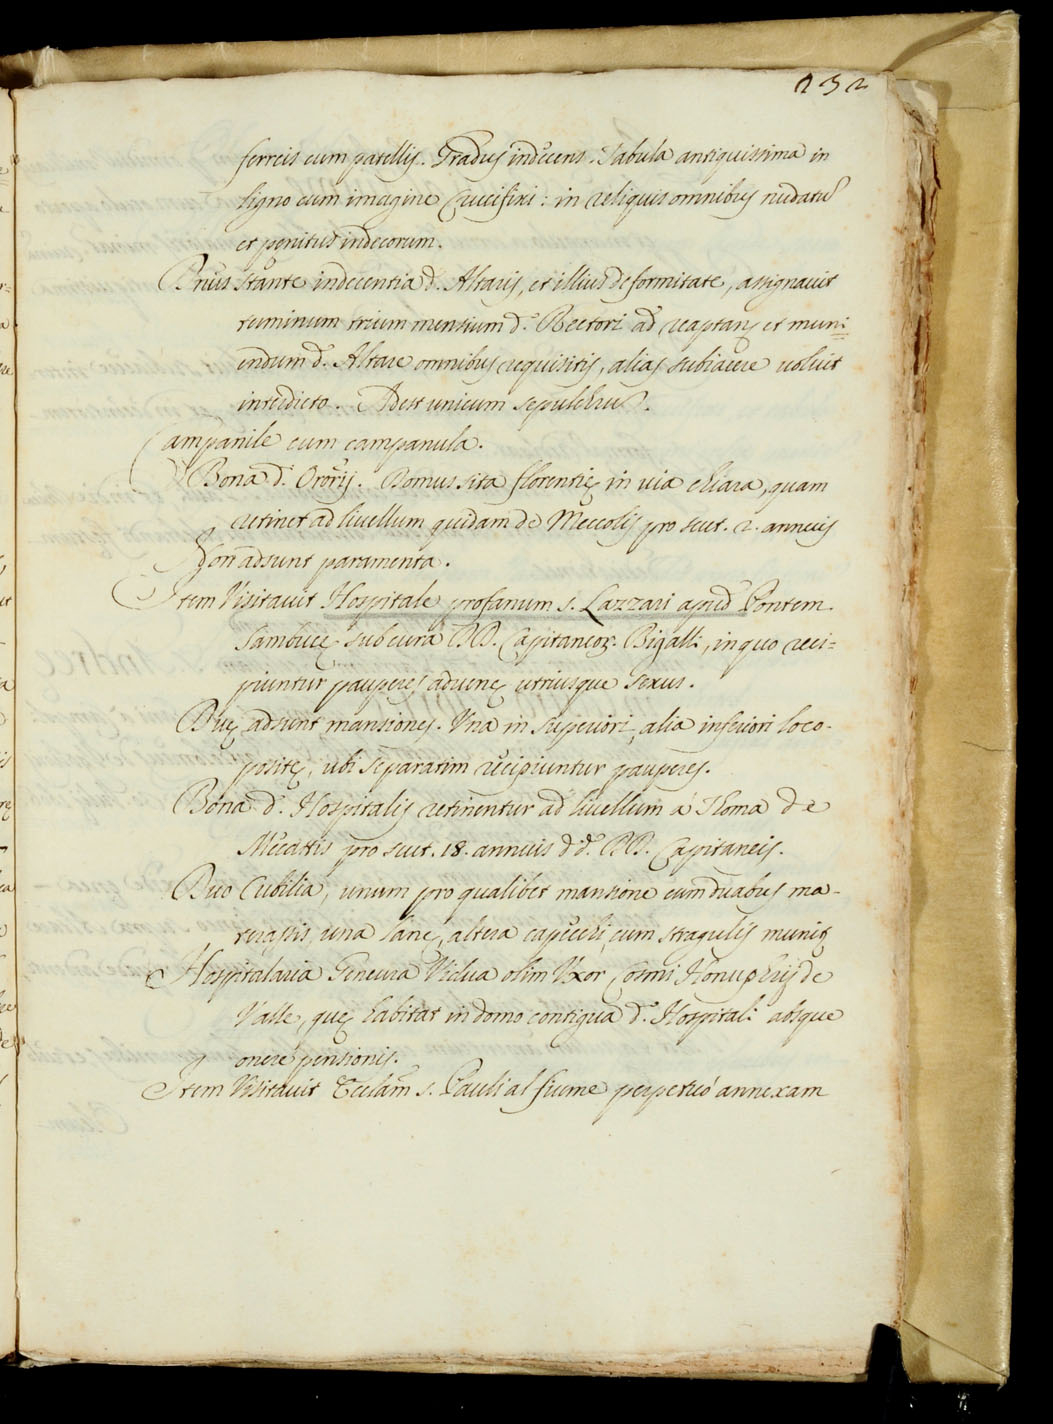 232
ferreis cum patellis. Gradus indecens. Tabula antiquissima in
ligno cum imagine Crucifixi: in reliquis omnibus nudatū
et penitus indecorum.
stante indecentia d. Altaris, et illius deformitate, assignauit
terminum trium mensium d.º Rectori ad reaptanḋ et muni=
endum d. Altare omnibus requisitis, alias subiacere uoluit
interdicto. Adest unicum sepulchrū.
Campanile cum campanula.
Bona d.i Orōrij. Domus sita florentię in uia chiara, quam
retinet ad liuellum quidam de Meccolis pro scut. 2. annuis
Non adsunt paramenta.
Item Visitauit Hospitale profanum s. Lazzari apud Pontem
Sambucę sub cura DD. Capitaneoꝝ. Bigalli, in quo reci=
piuntur pauperes aduenę utriusque sexus.
Duę adsunt mansiones. Vna in superiori, alia inferiori loco.
positę, ubi separatim recipiuntur pauperes.
Bona d.i Hospitalis retinentur ad liuellum á Thoma de
pro scut. 18. annuis d.d. DD. Capitaneis.
Duo Cubilia, unum pro qualibet mansione cum duabus ma-
terassis, una lanę, altera capecchi, cum stragulis munitę
Hospitalaria Geneura Vidua olim Vxor Cosmi Honuphrij de
Valle, quę habitat in domo contigua d.º Hospitali absque
onere pensionis.
Item Visitauit Eccləam s. Pauli al fiume perpetuó annexam